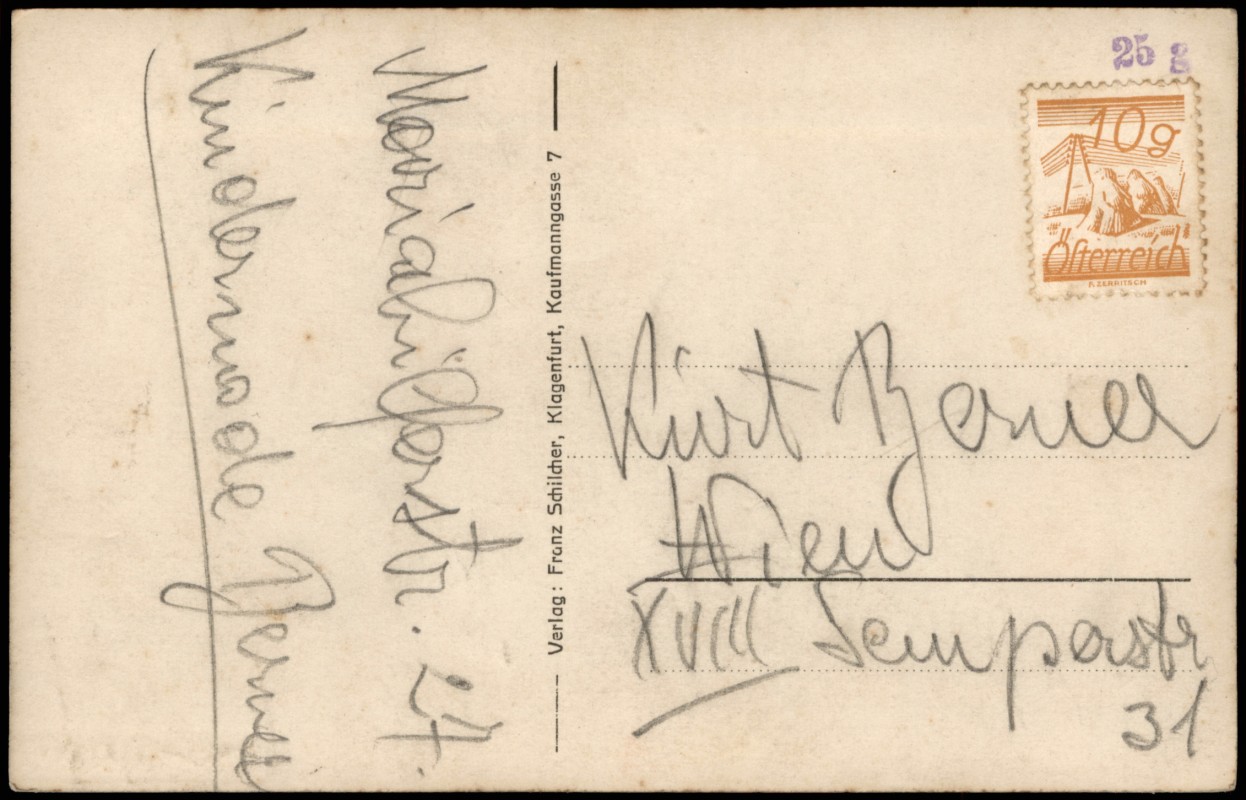 Mariahilferstr. 27.
Kindermode Berner
Verlag: Franz Schilcher, Klagenfurt, Kaufmanngasse 7
25 g
10g
Österreich
F. ZERRITSCH
Kurt Berner
Wien
XVIII Semperstr
31